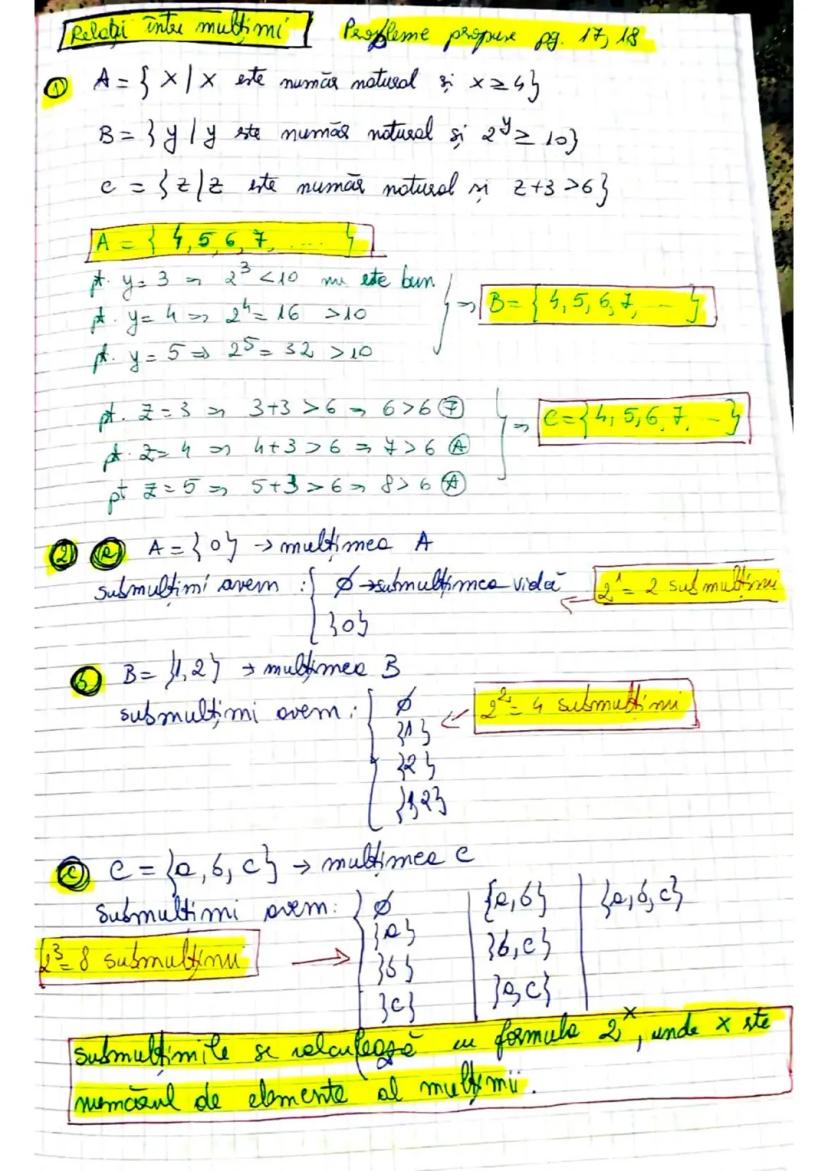 Relații între mulțimi Probleme propuse pg. 17, 18
① A = { x / x este număr natural și x ≥ 4}
B = { y / y este număr natural și 2^y ≥ 10}
C = { z / z este număr natural și z+3 >6}
A = { 4, 5, 6, 7, ..... }
pt. y= 3 ⇒ 2^3 <10 nu este bun
pt. y= 4 ⇒ 2^4= 16 >10 ⇒ B= { 4, 5, 6, 7, ... }
pt. y= 5 ⇒ 2^5= 32 >10
pt. z=3 ⇒ 3+3 >6 ⇒ 6>6 Ⓕ
pt. z= 4 ⇒ 4+3 >6 ⇒ 7 >6 Ⓐ ⇒ C={4, 5, 6, 7, ...}
pt z=5 ⇒ 5+3 >6 ⇒ 8> 6 Ⓐ
② ⓐ A = { 0 } → mulțimea A
submulțimi avem : { ∅ →submulțimea vidă 2^1 = 2 submulțimi
{0}
ⓑ B= {1,2} → mulțimea B
submulțimi avem : { ∅ 2^2= 4 submulțimi
{1}
{2}
{1,2}
ⓒ C = {a, b, c} → mulțimea C
submulțimi avem: { ∅ {a,b} {a,b,c}
{a}
2^3= 8 submulțimi → {b} {b,c}
{c} {a,c}
submulțimile se calculează cu formula 2^x, unde x este
numărul de elemente al mulțimii.